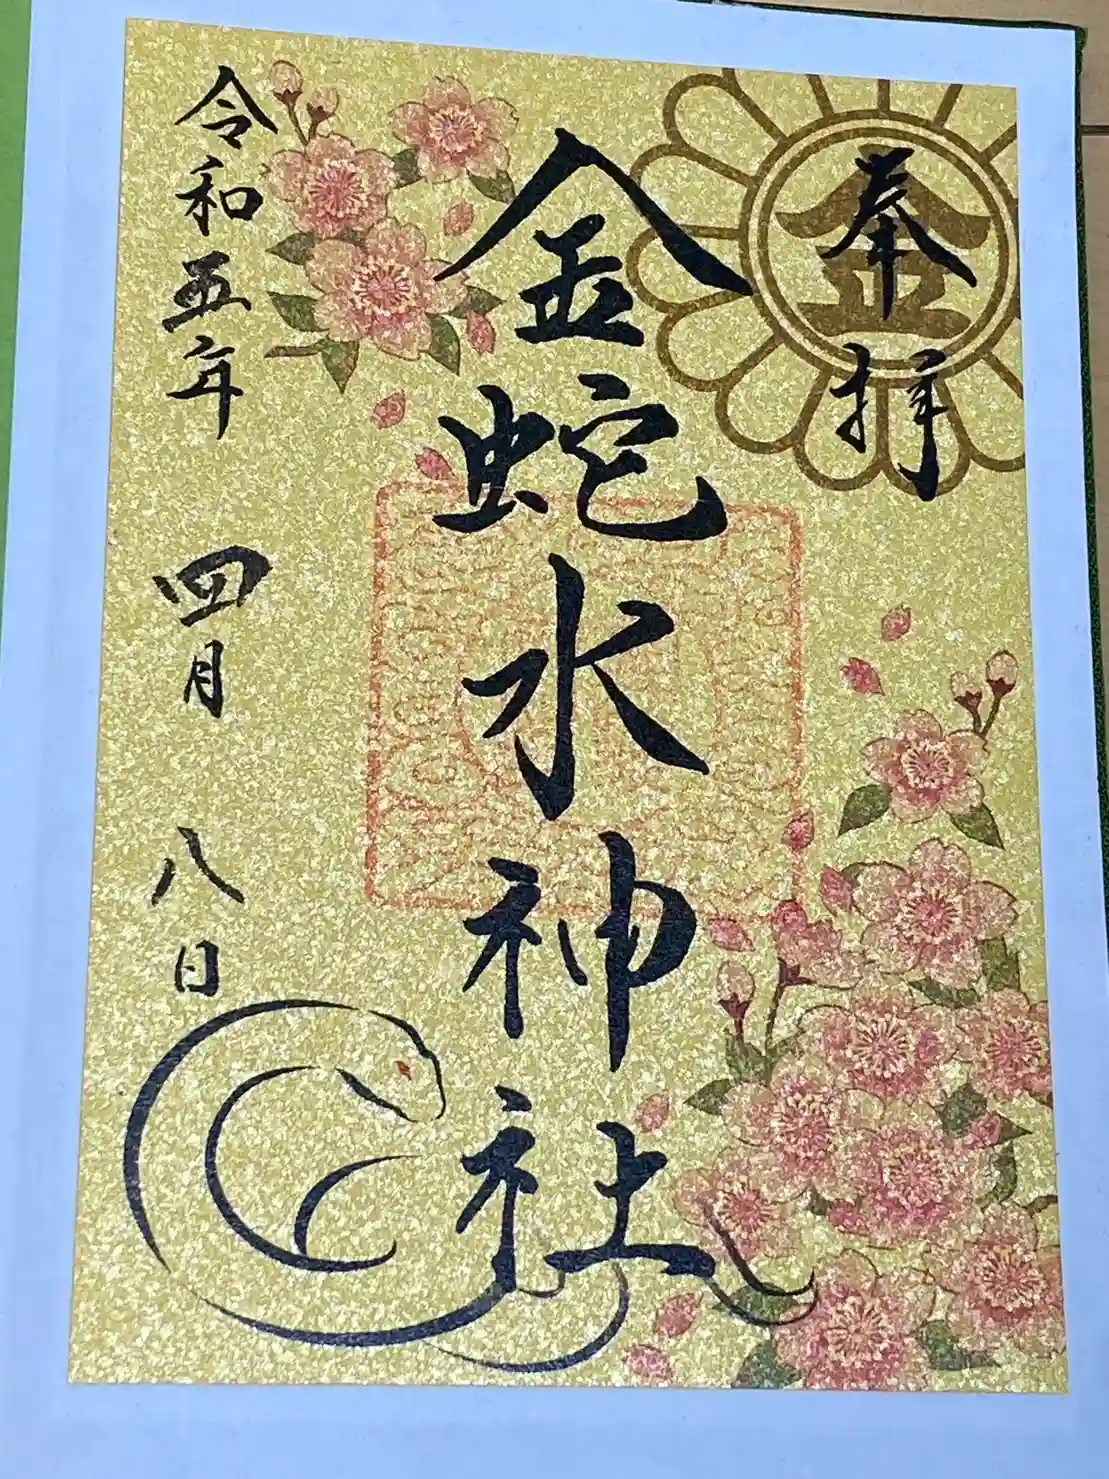 奉拝
金蛇水神社
令和五年 四月 八日